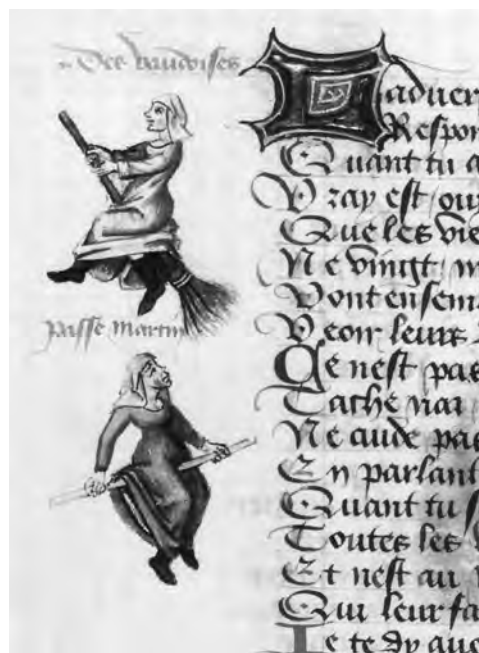 Des vaudoises
Laduer
Respon
Quant tu a
Vray est / ou
Que les vie
Ne vingt
Vont ensem
Veoir leurs
passe martin
Ce nest pas
Ne cuide pas
En parlant
Quant tu
Toutes les
Et nest au
Qui leur fa
Je te dy que